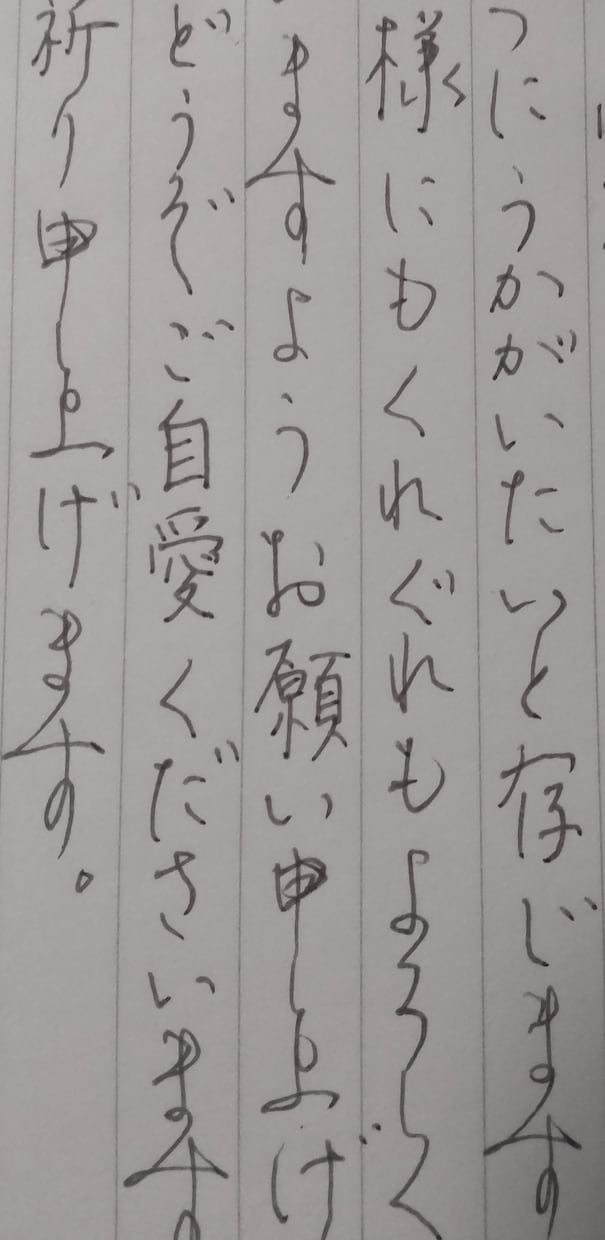 つにうかがいたいと存じます
様にもくれぐれもよろしく
ますようお願い申し上げ
どうぞご自愛くださいます
祈り申し上げます。